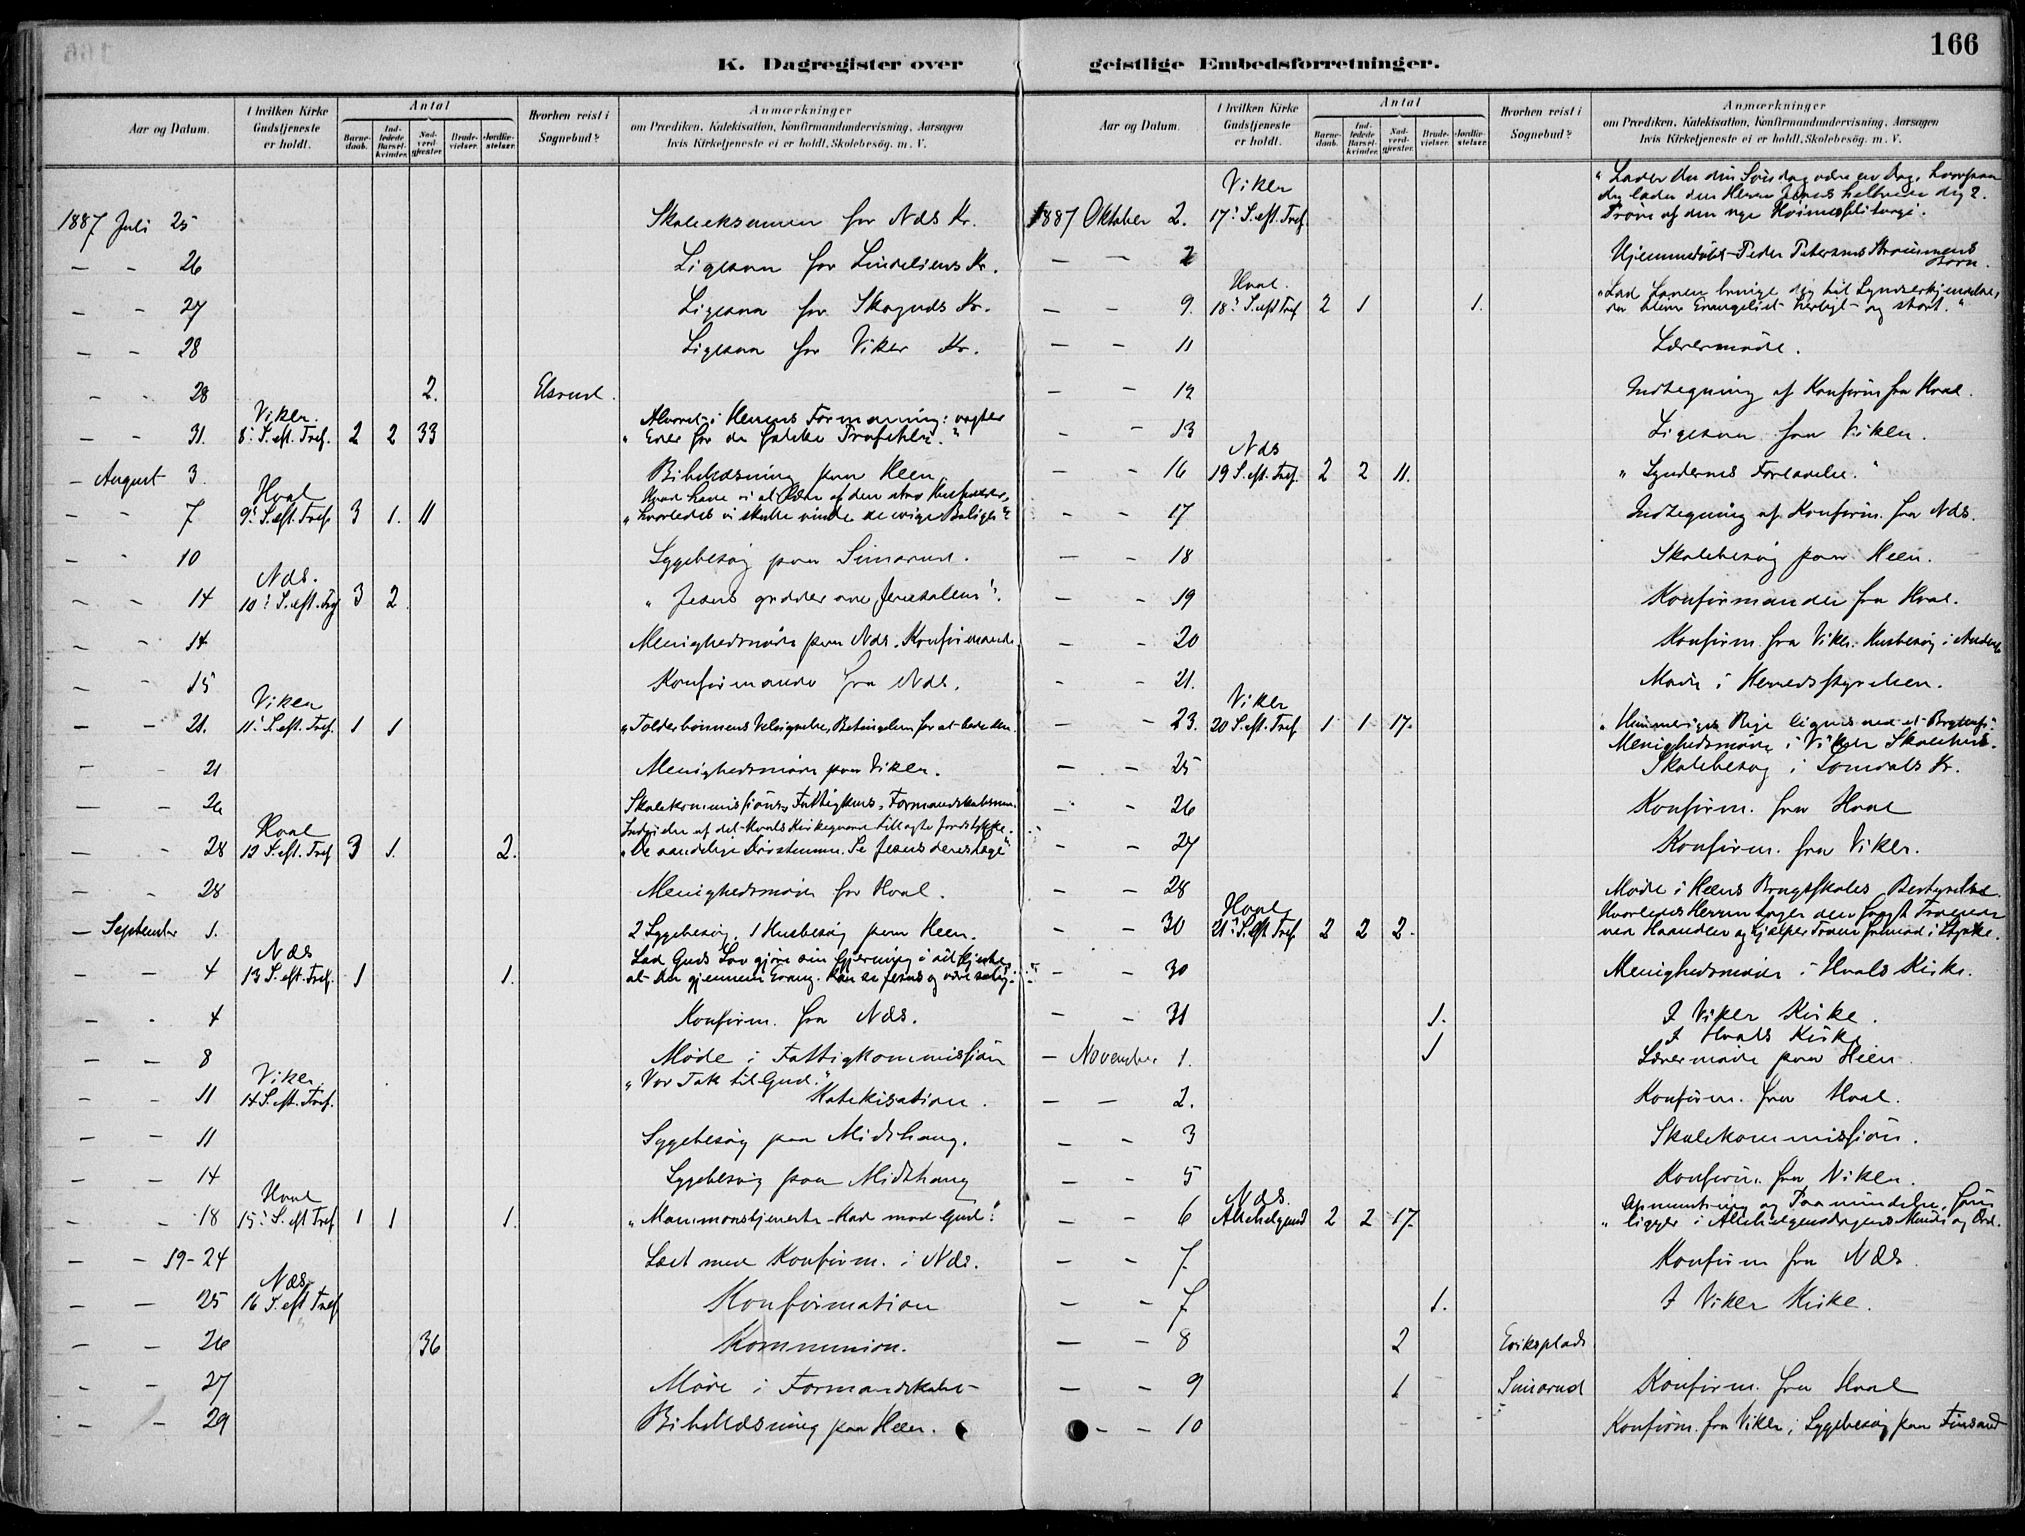 166
K. Dagregister over geistlige Embedsforretninger.
Aar og Datum.
I hvilken Kirke Gudstjeneste er holdt.
Antal
Barnedaab.
Indledede Barselkvinder.
Nadverdgjæster.
Brudevielser.
Jordfæstelser.
Hvorhen reist i Sognebud?
Anmærkninger
om Prædiken, Katekisation, Konfirmandundervisning, Aarsagen
hvis Kirketjeneste ei er holdt, Skolebesög. m. V.
1887 Juli 25 Skoleeksamen for Næs Kr.
— - 26 Ligesaa for Lindeliens Kr.
— - 27 Ligesaa for Skagnæs Kr.
— - 28 Ligesaa for Viker Kr.
- - 28 2. Elsrud.
- - 31. Viker 8: S. eft. Tref. 2 2 33 Herrens Formaning: vogter
Eder for de falske Profeter."
- August 3. Bibellæsning paa Heen
- - 7 Hval 9: S. eft. Tref. 3 1. 11 Hvad have vi at lære af den
"hvorledes vi skulle vinde de evige Boliger"
- - 10 Sygebesøg paa Simarud.
- - 14 Næs. 10: S. eft. Tref 3 2. "Jesus græder over Jerusalem".
- - 14 Menighedsmøde paa Næs. Konfirmande.
- - 15 Konfirmande fra Næs.
- - 21. Viker 11: S. eft. Tref. 1 1 "Tolderbønnens Velsignelse, Betingelsen for at bede den.
- - 21 Menighedsmøde paa Viker.
— - 26 Skolekommissions, Fattigkoms, Formandskabsm.
- - 28 Hval 12 S. eft. Tref 3 1. 2. Indvielse af det Hvals Kirkegaard tillagte Jordstykke.
"De aandelige Døvstumme. Se Jesus deres Læge"
- - 28 Menighedsmøde for Hval.
- September 1. 2 Sygebesøg. 1 Husbesøg paa Heen.
- - 4 Næs 13 S. eft. Tref. 1 1. Lad Guds Lov gjøre sin Gjerning i dit Hjerte,
at den gjennem Evang. kan se Jesus og være salig.
- - 4 Konfirm. fra Næs.
- - 8 Møde i Fattigkommission
- - 11 Viker 14 S. eft. Tref. "Vor Tak til Gud."
Katekisation.
- - 11 Sygebesøg paa Midthaug.
- - 14 Sygebesøg paa Midthaug
- - 18 Hval 15: S. eft Tref 1 1 1. "Mammonstjeneste Had mod Gud".
- - 19-24 Læst med Konfirm. i Næs.
- — 25 Næs 16 S. eft Tref Konfirmation
- - 26 36 Kommunion.
- - 27 Møde i Formandskabet
- - 29 Bibellæsning paa Heen.
Aar og Datum.
I hvilken Kirke Gudstjeneste er holdt.
Antal
Barnedaab.
Indledede Barselkvinder.
Nadverdgjæster.
Brudevielser.
Jordfæstelser.
Hvorhen reist i Sognebud?
Anmærkninger
om Prædiken, Katekisation, Konfirmandundervisning, Aarsagen
hvis Kirketjeneste ei er holdt, Skolebesög. m. V.
1887 Oktober 2. Viker 17: S. eft. Tref. "Lader du din Søndag være en Dag, hvorpaa
du lader den Herren Jesus helbrede dig?
Prøve af den nye Høimesseliturgi.
— — 2 Hjemmedøbt Peder Petersens Barn.
— - 9. Hval 18: S. eft Tref 2 1 1. "Lad Loven bringe dig til Synderkjendelse,
da blive Evangeliet herligt og stort."
— - 11 Lærermøde.
— - 12 Indtegning af Konfirm fra Hval.
- - 13 Ligesaa fra Viker.
- - 16 Næs 19 S. eft. Tref. 2 2 11. "Syndernes Forladelse."
- - 17 Indtegning af Konfirm. fra Næs.
— - 18 Skolebesøg paa Heen.
— - 19 Konfirmander fra Hval.
- - 20 Konfirm. fra Viker. Husbesøg i
- - 21. Møde i Herredsstyrelsen.
- - 23. Viker 20 S. eft. Tref 1 1 17. "Himmeriges Rige lignes ved et Bryllup"
Menighedsmøde i Viker Skolehus.
— - 25 Skolebesøg i Somdals Kr.
- - 26 Konfirm. fra Hval
- - 27 Konfirm. fra Viker.
- - 28 Møde i Heens Brugsskoles Bestyrelse
- - 30 Hval 21: S. eft. Tref 2 2 2. Hvorledes Herren tager den svage Troende
ved Haanden og hjælper Troen fremad i Styrke.
- - 30 Menighedsmøde i Hvals Kirke.
- - 31 1. I Viker Kirke.
- November 1. 1 I Hvals Kirke
Lærermøde paa Heen.
— — 2. Konfirm. fra Hval.
- - 3 Skolekommission.
- - 5 Konfirm. fra Viker.
- - 6 Næs. Allehelgensd 2 2 17. Opmuntring og Paamindelse, som
"ligger i Allehelgensdagens Minde og Ord.
- - 7. Konfirm fra Næs.
— - 7 1. I Viker Kirke.
— - 8 2 Eriksplads
— - 9 1 Simarud Konfirm. fra Hval
- - 10 Konfirm. fra Viker, Sygebesøg paa Finsand